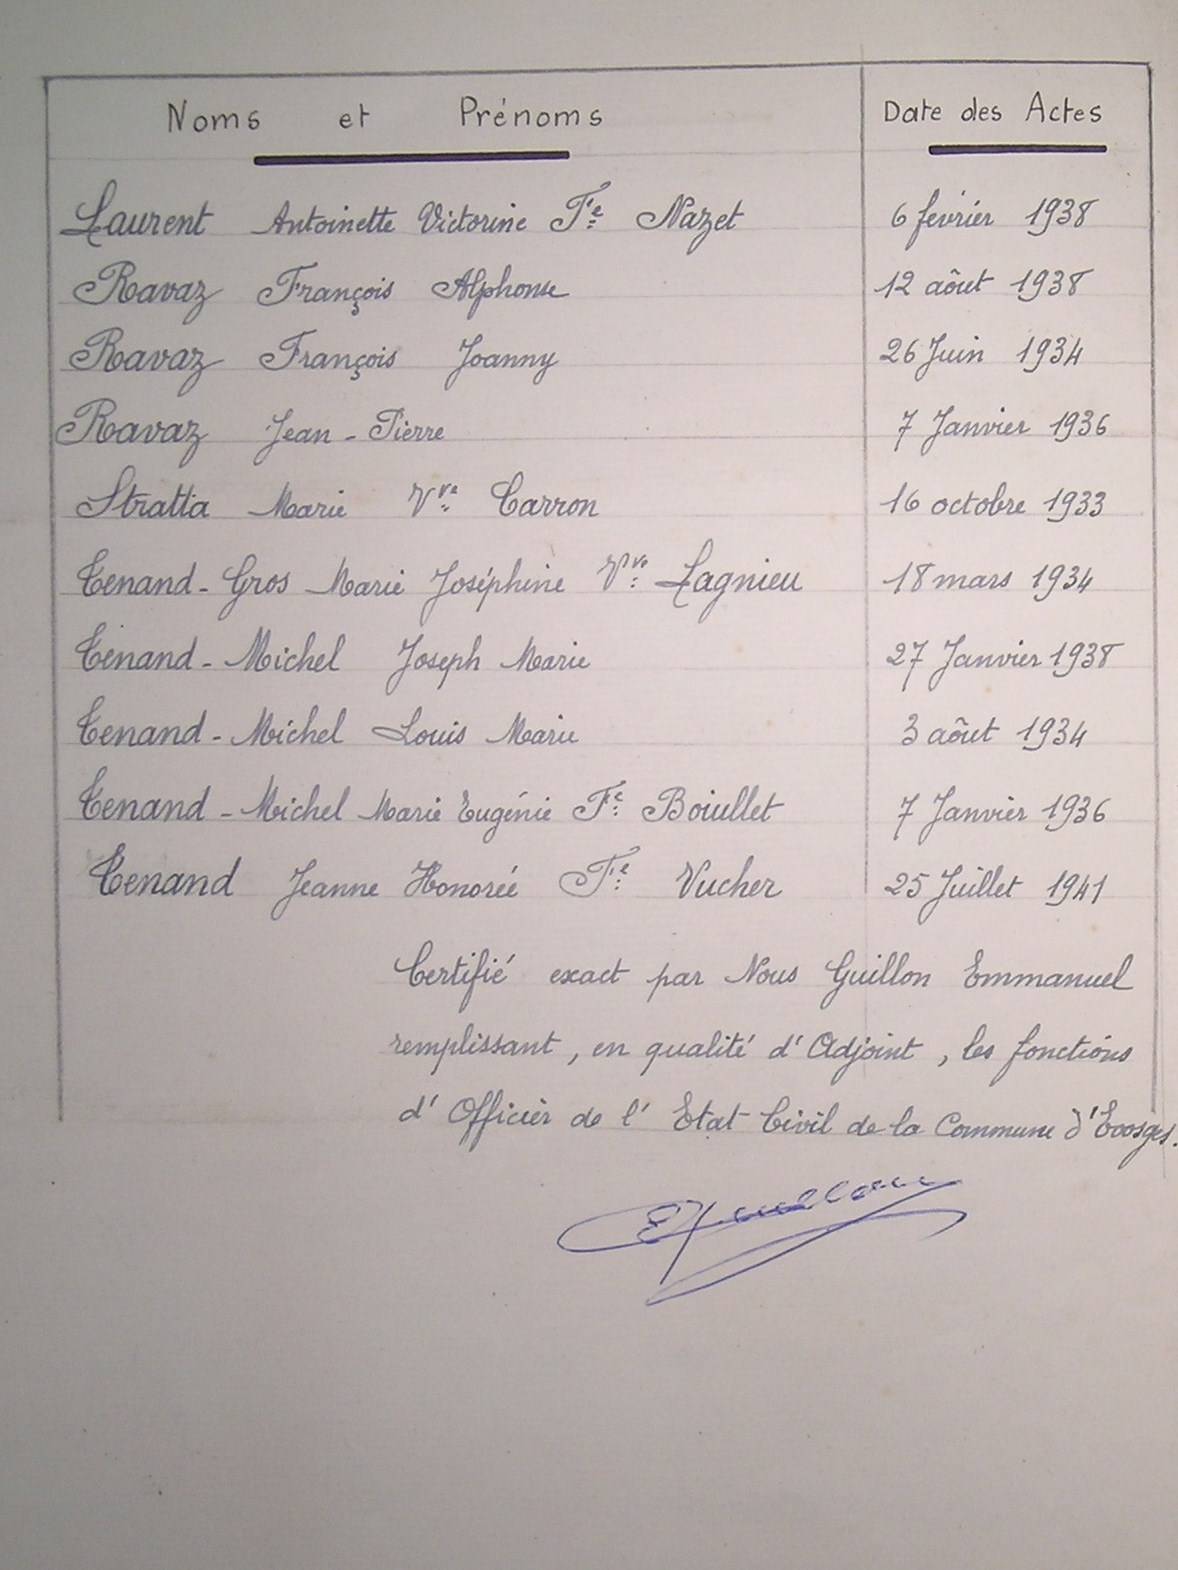 Noms et Prénoms Date des Actes
Laurent Antoinette Victorine Fe Nazet 6 février 1938
Ravaz François Alphonse 12 aôut 1938
Ravaz François Joanny 26 Juin 1934
Ravaz Jean - Pierre 7 Janvier 1936
Stratta Marie Vve Carron 16 octobre 1933
Tenand - Gros Marie Joséphine Vve Lagnieu 18 mars 1934
Tenand - Michel Joseph Marie 27 Janvier 1938
Tenand - Michel Louis Marie 3 aôut 1934
Tenand - Michel Marie Eugénie Fe Boiullet 7 Janvier 1936
Tenand Jeanne Honorée Fe Vucher 25 Juillet 1941
Certifié exact par Nous Guillon Emmanuel
remplissant, en qualité d'Adjoint, les fonctions
d'Officier de l'Etat Civil de la Commune d'Evosges.
EGuillon